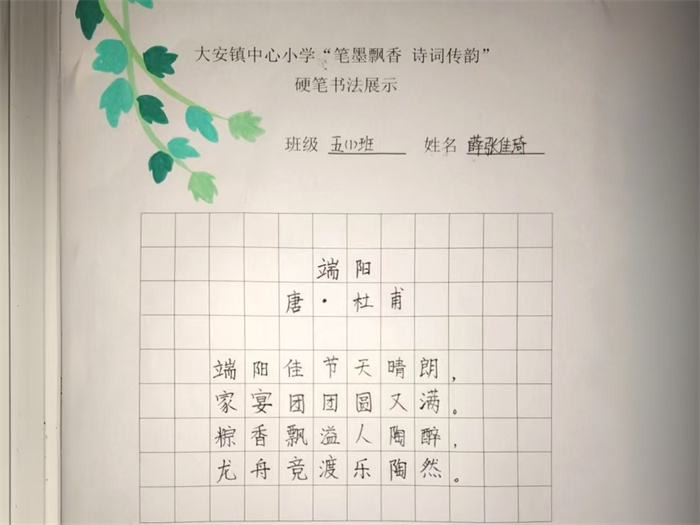 大安镇中心小学“笔墨飘香 诗词传韵”
硬笔书法展示
班级 五(1)班 姓名 薛张佳琦
端阳
唐·杜甫
端阳佳节天晴朗，
家宴团团圆又满。
粽香飘溢人陶醉，
龙舟竞渡乐陶然。